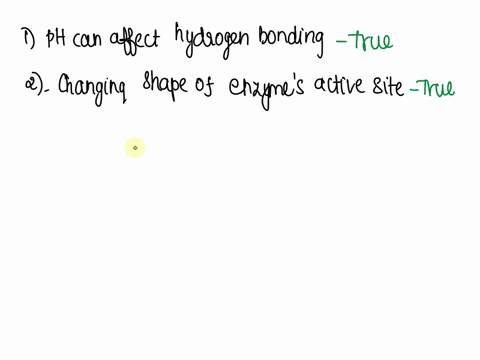 1) pH can affect hydrogen bonding - True
2). Changing shape of enzyme's active site - True